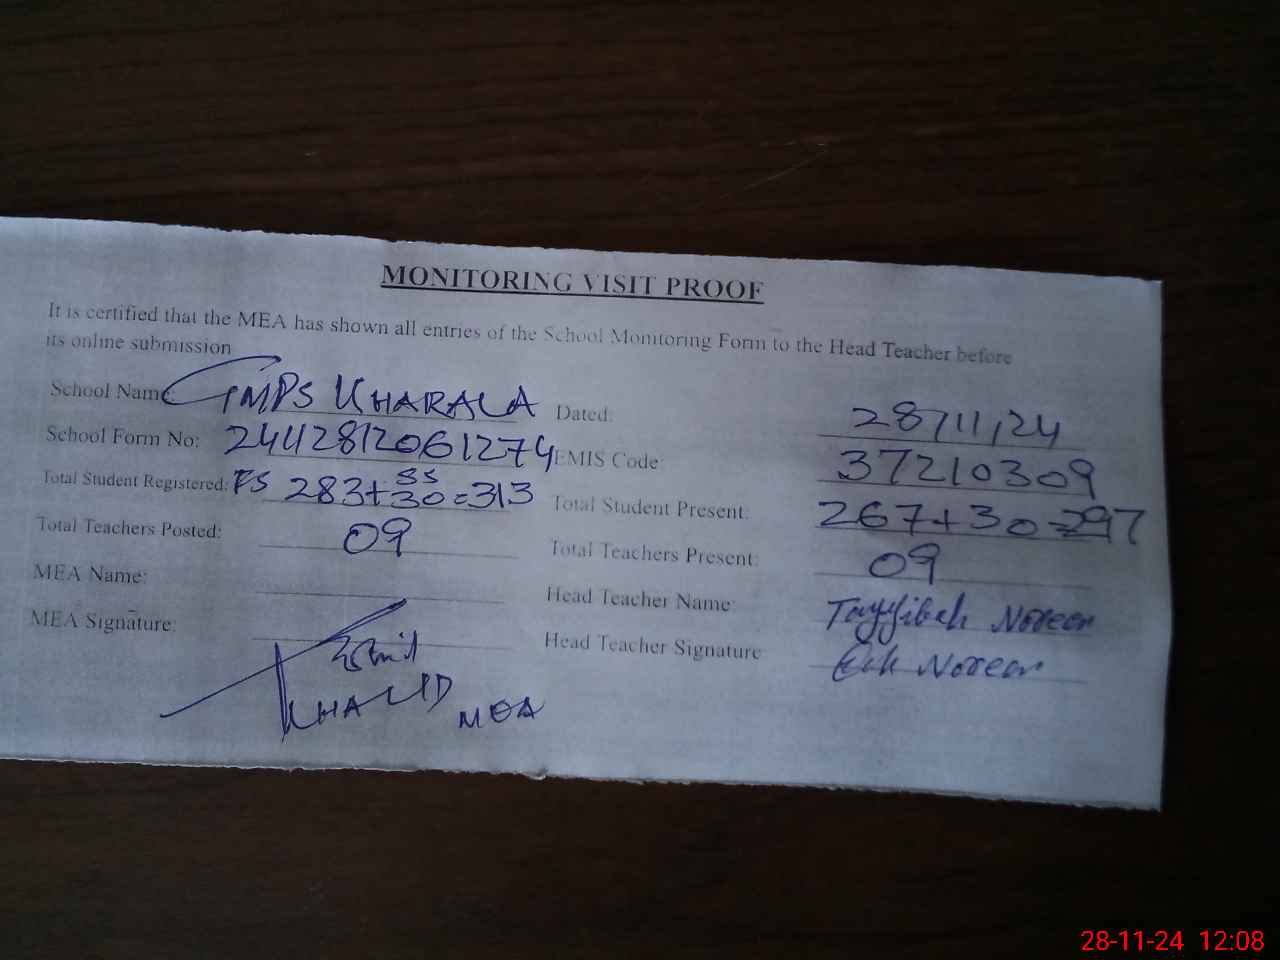 MONITORING VISIT PROOF
It is certified that the MEA has shown all entries of the School Monitoring Form to the Head Teacher before
its online submission
School Name: GMPS KHARALA Dated: 28/11/24
School Form No: 24112812061274 EMIS Code: 37210309
Total Student Registered: FS 283+30=313 SS Total Student Present: 267+30=297
Total Teachers Posted: 09 Total Teachers Present: 09
MEA Name: Head Teacher Name: Tayyibah Noreen
MEA Signature: Head Teacher Signature: Noreen
KHALID MEA
28-11-24 12:08